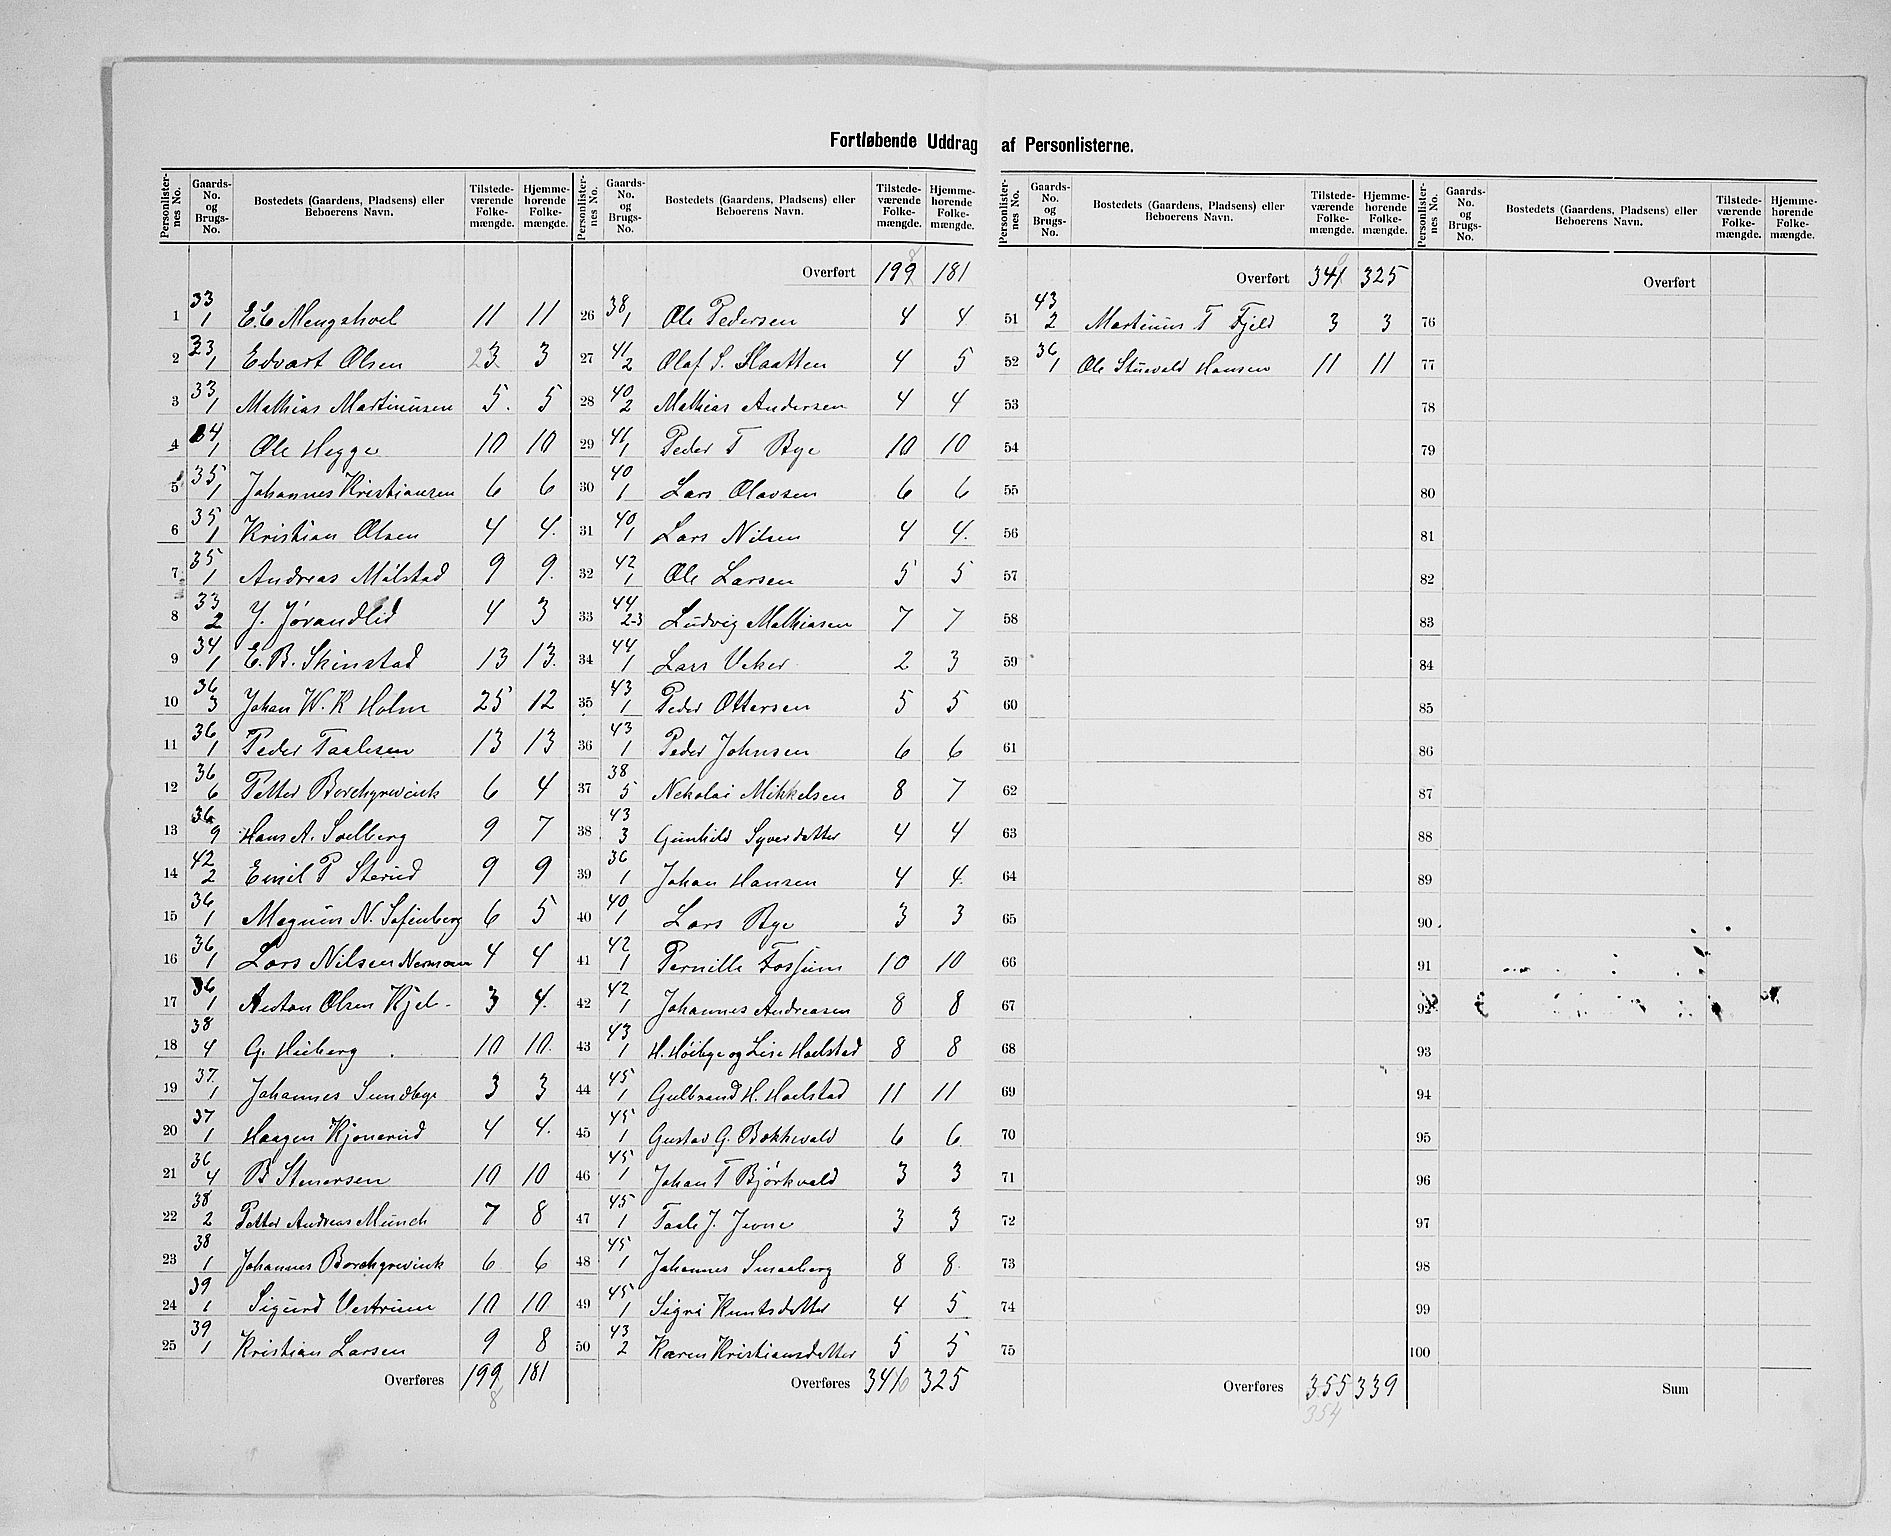 Fortløbende Uddrag af Personlisterne.
Personlisternes No. Gaards-No. og Brugs-No. Bostedets (Gaardens, Pladsens) eller Beboerens Navn. Tilstedeværende Folkemængde. Hjemmehørende Folkemængde.
1 33/1 E. E Mengshoel 11 11
2 33/1 Edvart Olsen 3 3
3 33/1 Mathias Martinusen 5 5
4 34/1 Ole Hegge 10 10
5 35/1 Johannes Kristiansen 6 6
6 35/1 Kristian Olsen 4 4
7 35/1 Andreas Målstad 9 9
8 33/2 J. Jørandlid 4 3
9 34/1 E. B. Skinstad 13 13
10 36/3 Johan W. K Holm 25 12
11 36/1 Peder Taalesen 13 13
12 36/6 Petter Borchgrevink 6 4
13 36/9 Hans A. Solberg 9 7
14 42/2 Emil P Sterud 9 9
15 36/1 Magnus N. Sofienberg 6 5
16 36/1 Lars Nilsen Nermoen 4 4
17 36/1 Anton Olsen Kjel- 3 4
18 38/4 G. Hieberg 10 10
19 37/1 Johannes Sundbye 3 3
20 37/1 Haagen Kjonerud 4 4
21 36/4 B Stenersen 10 10
22 38/2 Petter Andreas Münch 7 8
23 38/1 Johannes Borchgrevink 6 6
24 39/1 Sigurd Vestrum 10 10
25 39/1 Kristian Larsen 9 8
Overføres 199 181
8
Personlisternes No. Gaards-No. og Brugs-No. Bostedets (Gaardens, Pladsens) eller Beboerens Navn. Tilstedeværende Folkemængde. Hjemmehørende Folkemængde.
Overført 199 181
26 38/1 Ole Pedersen 4 4
27 41/2 Olaf S. Slaatten 4 5
28 40/2 Mathias Andersen 4 4
29 41/1 Peder T Bye 10 10
30 40/1 Lars Olavsen 6 6
31 40/1 Lars Nilsen 4 4
32 42/1 Ole Larsen 5 5
33 44/2-3 Ludvig Mathiasen 7 7
34 44/1 Lars Veker 2 3
35 43/1 Peder Ottersen 5 5
36 43/1 Peder Johnsen 6 6
37 38/5 Nekolai Mikkelsen 8 7
38 43/3 Gunhild Syverdatter 4 4
39 36/1 Johan Hansen 4 4
40 40/1 Lars Bye 3 3
41 42/1 Pernille Fossum 10 10
42 42/1 Johannes Andreasen 8 8
43 43/1 H. Høibye og Lise Hoelstad 8 8
44 45/1 Gulbrand H. Hoelstad 11 11
45 45/1 Gustav G. Bokkvald 6 6
46 45/1 Johan T Bjørkvald 3 3
47 45/1 Taale J. Jevne 3 3
48 45/1 Johannes Smaaberg 8 8
49 45/1 Sigri Knutsdatter 4 5
50 43/2 Karen Kristiansdatter 5 5
Overføres 341 0 325
Personlisternes No. Gaards-No. og Brugs-No. Bostedets (Gaardens, Pladsens) eller Beboerens Navn. Tilstedeværende Folkemængde. Hjemmehørende Folkemængde.
Overført 341 325
51 43/2 Martinus T Fjeld 3 3
52 36/1 Ole Hansen 11 11
53
54
55
56
57
58
59
60
61
62
63
64
65
66
67
68
69
70
71
72
73
74
75
Overføres 355 339
354
Personlisternes No. Gaards-No. og Brugs-No. Bostedets (Gaardens, Pladsens) eller Beboerens Navn. Tilstedeværende Folkemængde. Hjemmehørende Folkemængde.
Overført
76
77
78
79
80
81
82
83
84
85
86
87
88
89
90
91
92
93
94
95
96
97
98
99
100
Sum